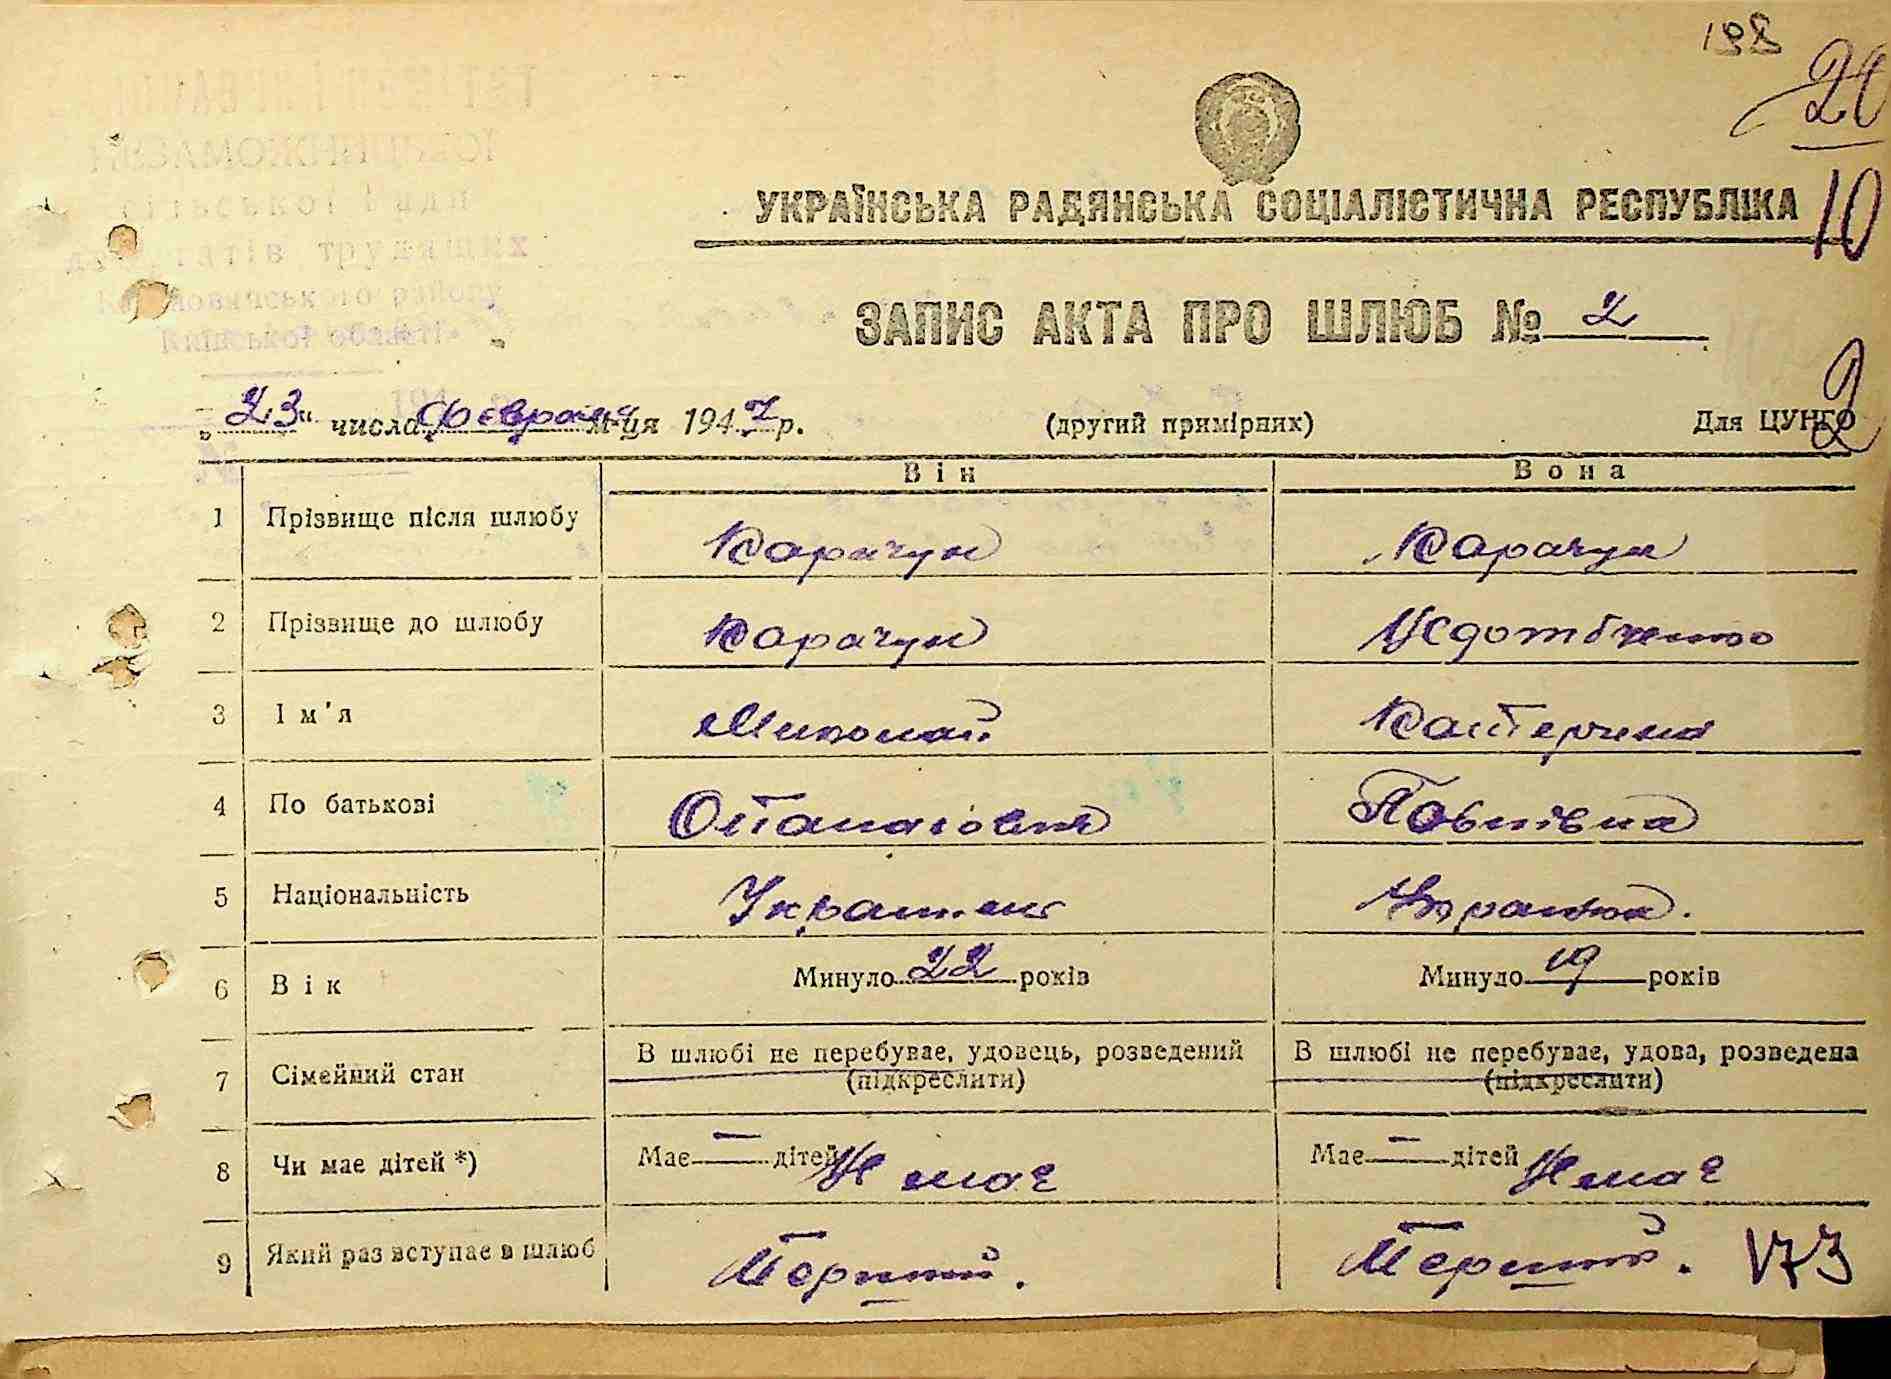 198
20
10
НЕЗАМОЖНИЦЬКОЇ
сільської Ради
депутатів трудящих
району
Київської області
УКРАЇНСЬКА РАДЯНСЬКА СОЦІАЛІСТИЧНА РЕСПУБЛІКА
ЗАПИС АКТА ПРО ШЛЮБ № 2
2
„23“ числа февраля м-ця 1947 р. (другий примірник) Для ЦУНГО
Він Вона
1 Прізвище після шлюбу Карачун Карачун
2 Прізвище до шлюбу Карачун
3 Ім'я Миколай Катерина
4 По батькові Опанасович Павлівна
5 Національність Українець Українка.
6 Вік Минуло 22 років Минуло 19 років
7 Сімейний стан В шлюбі не перебуває, удовець, розведений (підкреслити) В шлюбі не перебуває, удова, розведена (підкреслити)
8 Чи має дітей *) Має — дітей Немає Має — дітей Немає
9 Який раз вступає в шлюб Перший. Перший.
173